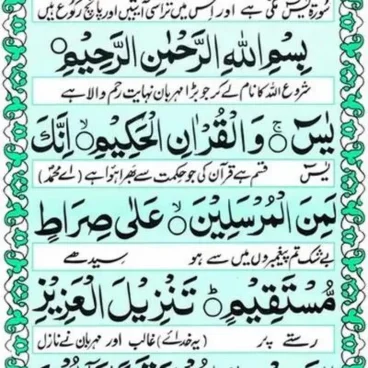 سُوْرَۃُ یٰسٓ مکی ہے اور اس میں تراسی آیتیں اور پانچ رکوع ہیں
بِسْمِ اللّٰهِ الرَّحْمٰنِ الرَّحِيْمِ
شروع اللہ کا نام لے کر جو بڑا مہربان نہایت رحم والا ہے
يٰسٓ ۚ وَالْقُرْاٰنِ الْحَكِيْمِ ۙ اِنَّكَ
یٰسٓ قسم ہے قرآن کی جو حکمت سے بھرا ہوا ہے (اے محمدؐ)
لَمِنَ الْمُرْسَلِيْنَ ۙ عَلٰى صِرَاطٍ
بے شک تم پیغمبروں میں سے ہو سیدھے
مُّسْتَقِيْمٍ ؕ تَنْزِيْلَ الْعَزِيْزِ
رستے پر (یہ خدائے) غالب اور مہربان نے نازل